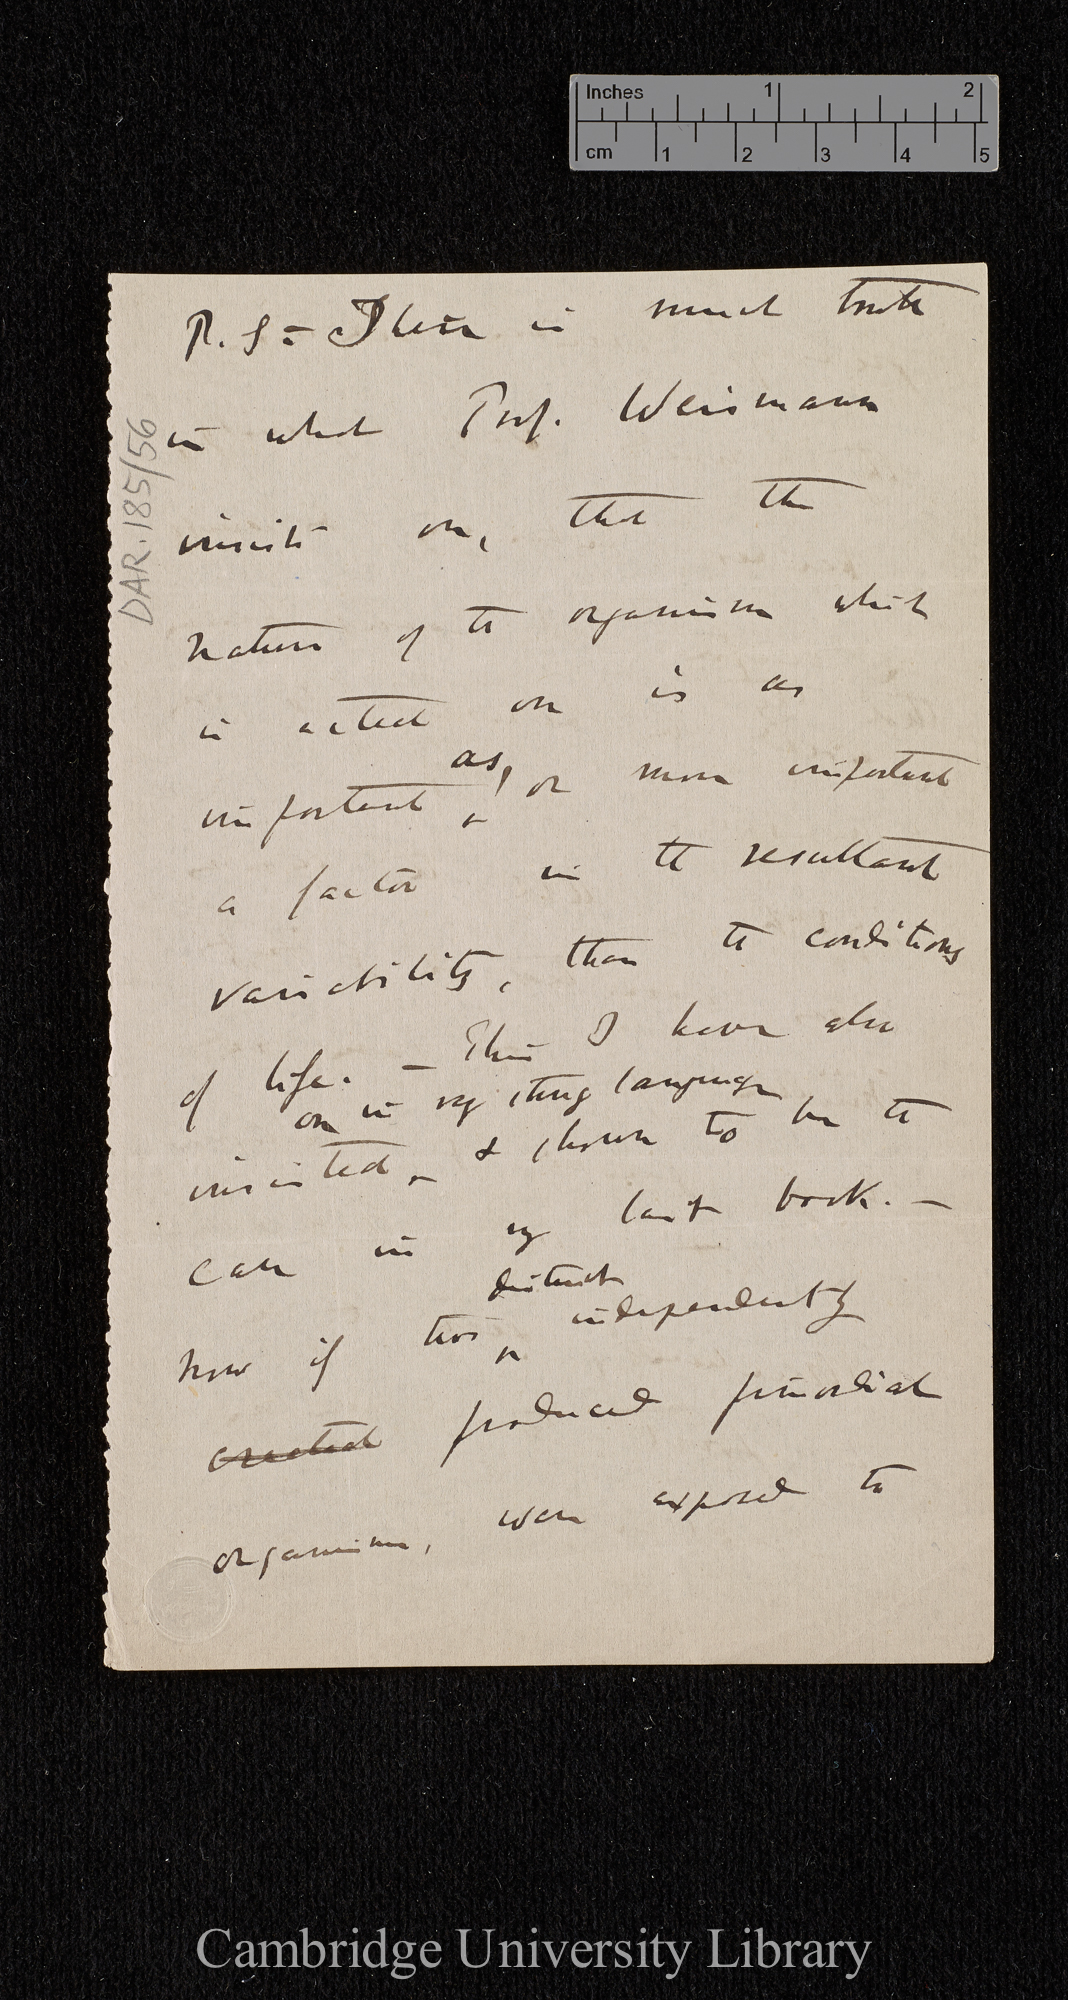 Inches 1 2
cm 1 2 3 4 5
P.S.— There is much truth
in what Prof. Weismann
insists on, that the
nature of the organism which
is acted on is as
as,
important ^ or more important
a factor in the resultant
variability, than the conditions
of life. — This I have also
on in very strong language
insisted ^ & shown to be the
case in my last book. —
distinct
Now if two ^ independently
created produced primordial
organisms, were exposed to
DAR.185/56
Cambridge University Library